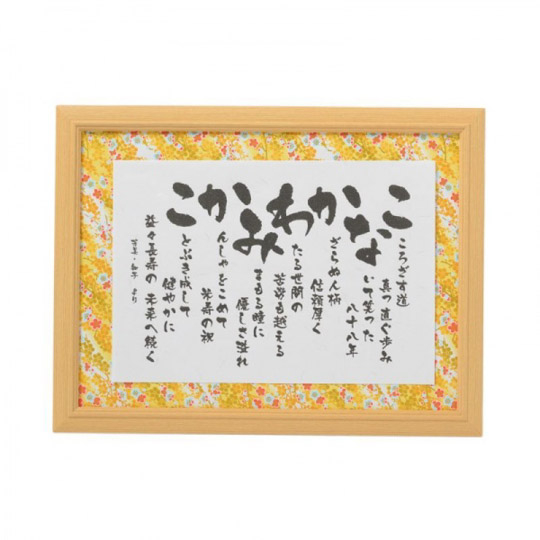 こ
ころざす道
真っ直ぐ歩み
な
いて笑った
八十八年
か
ざらぬ人柄
信頼厚く
わ
たる世間の
苦労も越える
み
まもる瞳に
優しさ溢れ
か
んしゃをこめて
米寿の祝
こ
とぶき成して
健やかに
益々長寿の 未来へ続く
より